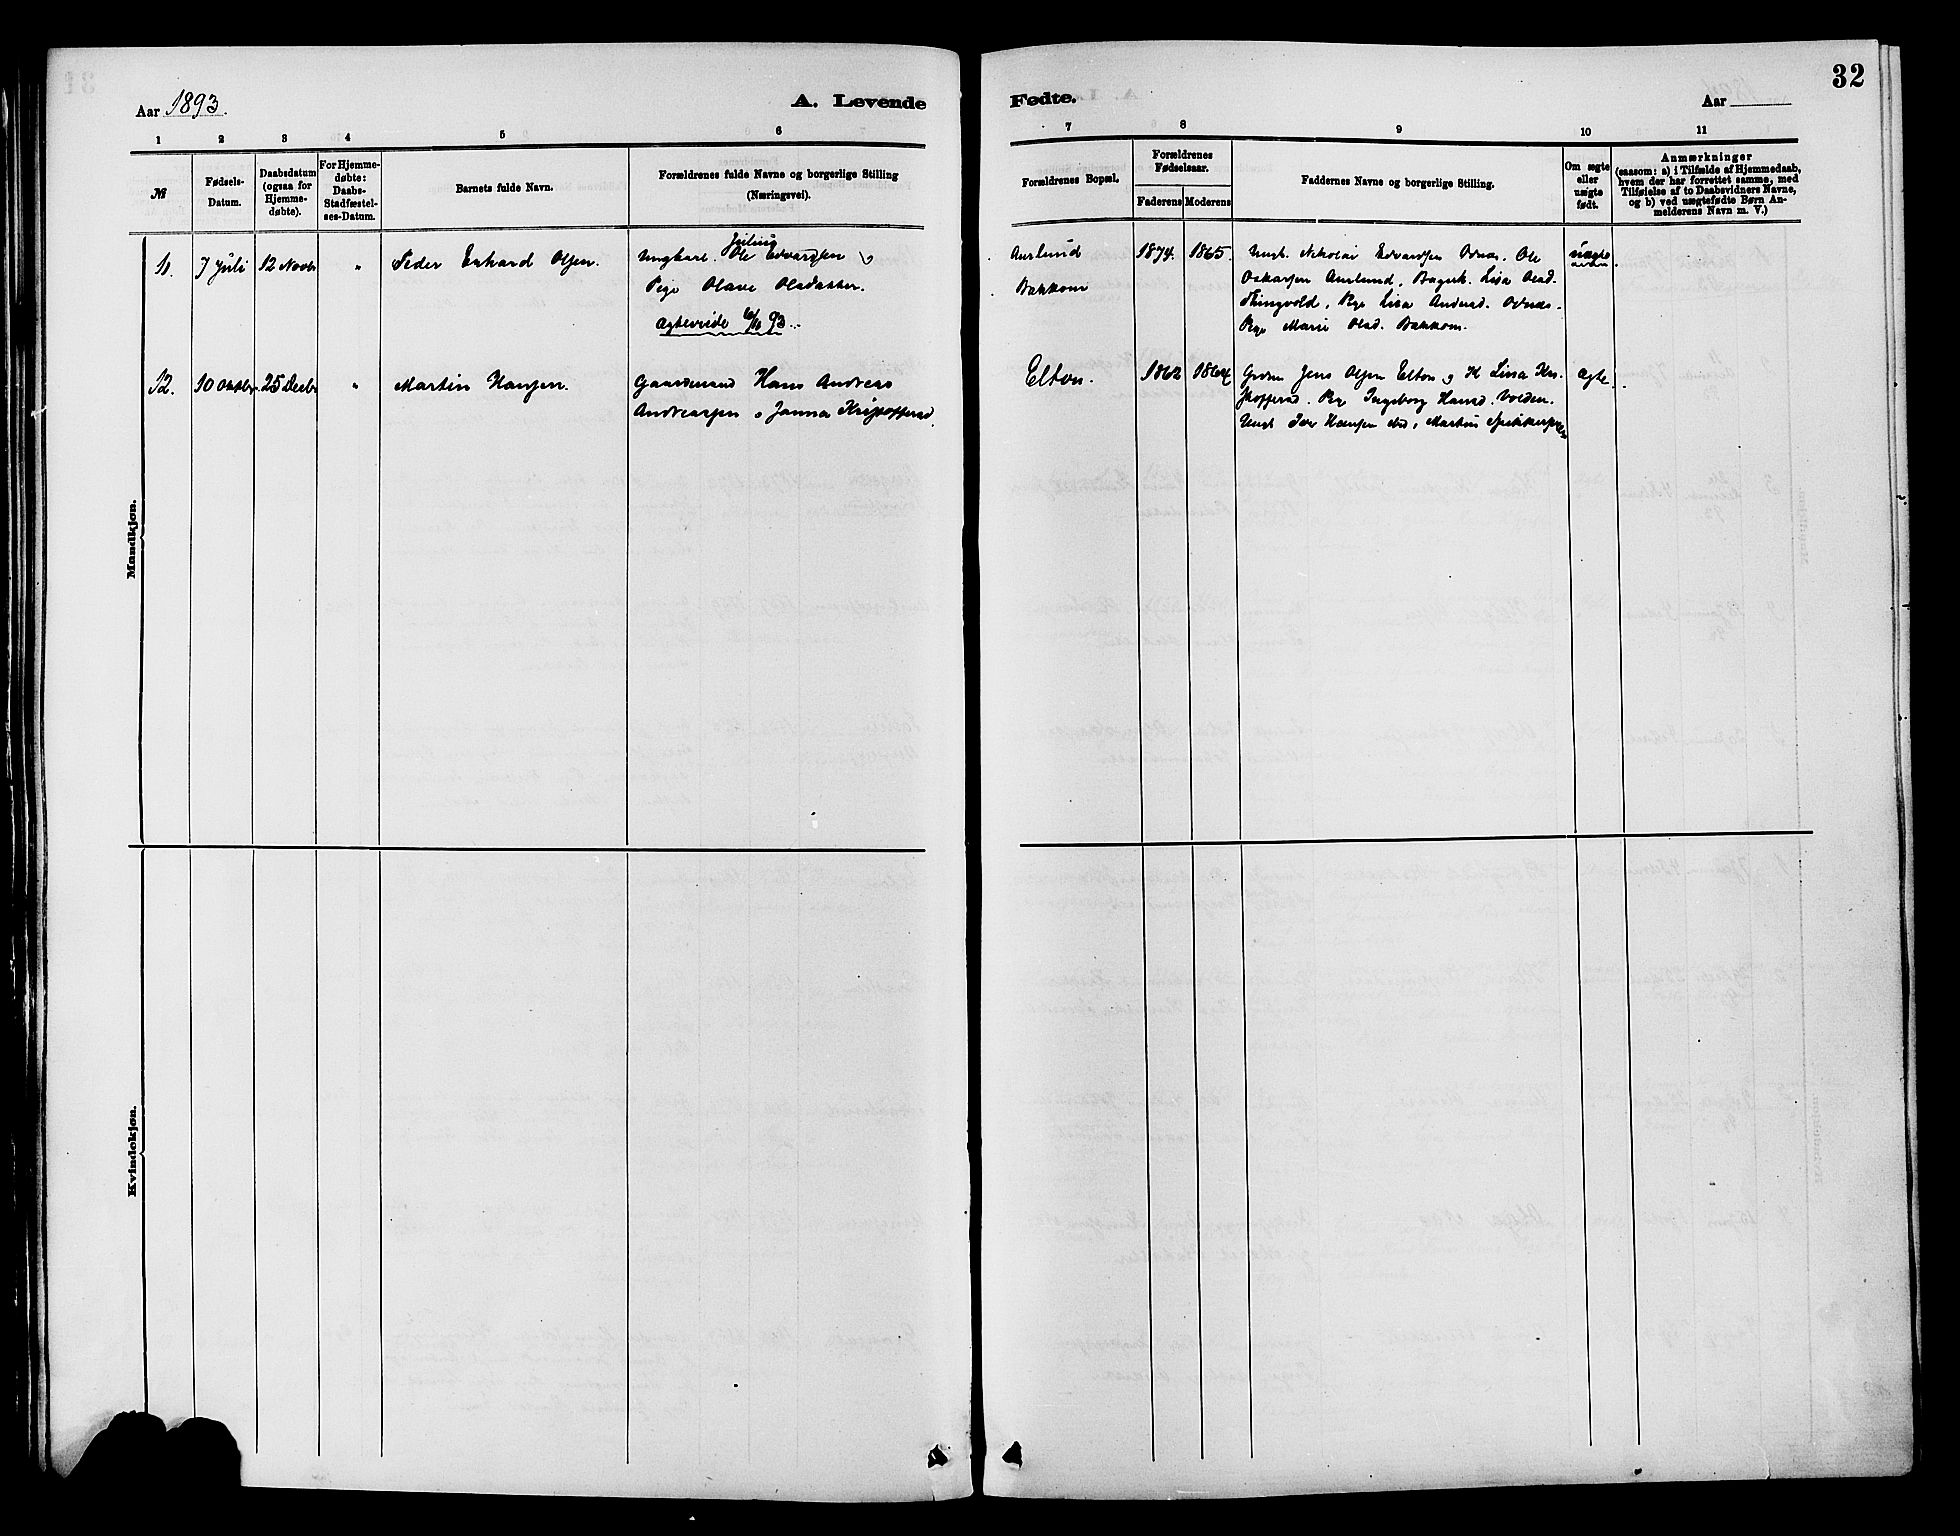 32
Aar 1893.
A. Levende
Fødte.
Aar
1 2 3 4 5 6
7 8 9 10 11
№
Fødsels-
Datum.
Daabsdatum
(ogsaa for
Hjemme-
døbte).
For Hjemme-
døbte:
Daabs-
Stadfæstel-
ses-Datum.
Barnets fulde Navn.
Forældrenes fulde Navne og borgerlige Stilling
(Næringsvei).
Forældrenes Bopæl.
Forældrenes
Fødselsaar.
Faderens Moderens
Faddernes Navne og borgerlige Stilling.
Om ægte
eller
uægte
født.
Anmærkninger
(saasom: a) i Tilfælde af Hjemmedaab,
hvem der har forrettet samme, med
Tilføielse af to Daabsvidners Navne,
og b) ved uægtefødte Børn An-
melderens Navn m. V.)
Mandkjøn.
11. 7 Juli 12 Novbr " Peder Erhard Olsen.
Ungkarl. Ole Edvardsen
Pige Olave Olsdatter.
Ægteviede 93.
Aurlund
Bakkom
1874. 1865.
Ungk. Nikolai Edvardsen Odnes. Ole
Oskarsen Aurlund, Lisa Olsd.
Thingvold, Pige Lisa Andersd. Odnes.
Pige Marie Olsd. Bakkom.
uægte
12. 10 Oktbr. 25 Decbr " Martin Hansen.
Gaardmand Hans Andreas
Andreassen o Janna Kristoffersd.
Elton.
1862 1864
Grdm. Jens Olsen Elton o K Lina Kri-
stoffersd. Pige Ingeborg Hansd. Volden.
Ungk Iver Hansen
ægte.
Kvindekjøn.